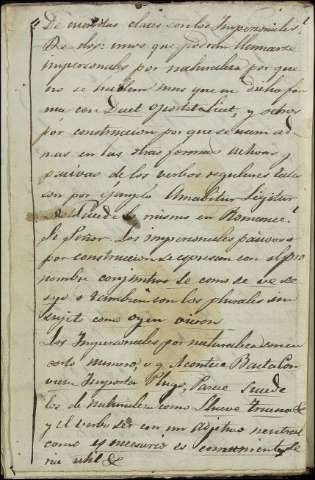 De cuantas clases son los Impersonales.
De dos: unos que podran llamarse
impersonales por naturaleza porque
no se hallan mas que en dicha for
ma con Decet Oportet Licet, y otros
por construccion por que se usan ad
mas en las otras formas activas
pasivas de los verbos regulares tales
son por ejemplo Amabitur Legitur
Puede lo mismo en Romance.
Si Señor. Los impersonales pasivos o
por construccion se espresan con el pro
nombre conjuntivo se como se ve se
oye o tambien con los plurales sin
sujeto como oyen vieron
Los Impersonales por naturaleza son en
corto numero, v g Acontece Basta Con
viene Importa Plugo, Parece Sucede
los de naturaleza como Llueve Truena &
y el verbo ser con un adjetivo neutral
como es necesario es conveniente, se
ria util &